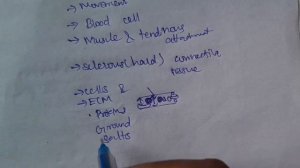 → Movement
→ Blood cell
→ Muscle & tendons attachment
→ sclerous(hard) connective tissue
→ cells &
→ ECM
Ground
salts